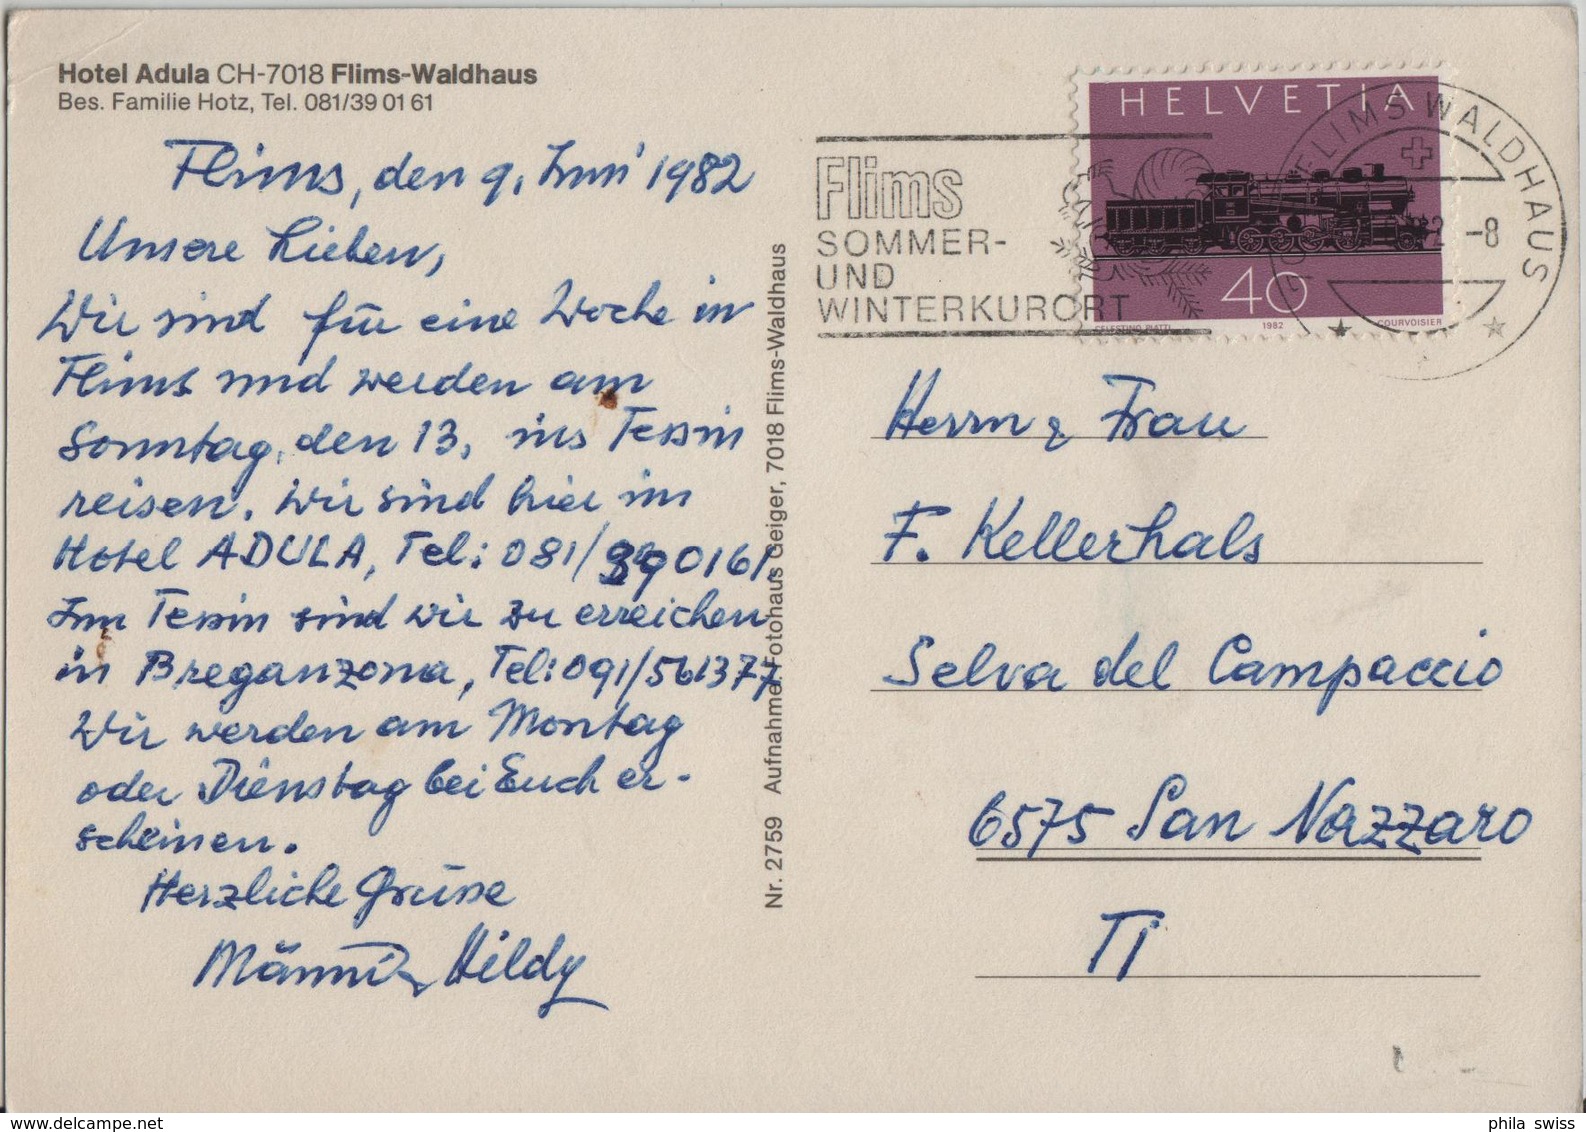 Hotel Adula CH-7018 Flims-Waldhaus
Bes. Familie Hotz, Tel. 081/39 01 61
Flims, den 9. Juni 1982
Unsere Lieben,
Wir sind für eine Woche in
Flims und werden am
Sonntag, den 13. ins Tessin
reisen. Wir sind hier im
Hotel ADULA, Tel: 081/390161
Im Tessin sind wir zu erreichen
in Breganzona, Tel: 091/561377
Wir werden am Montag
oder Dienstag bei Euch er-
scheinen.
Herzliche Grüsse
Männi & Hildy
Nr. 2759 Aufnahme: Fotohaus Geiger, 7018 Flims-Waldhaus
Flims
SOMMER-
UND
WINTERKURORT
HELVETIA
40
CELESTINO PIATTI 1982 COURVOISIER
FLIMS WALDHAUS
2 -8
Herrn & Frau
F. Kellerhals
Selva del Campaccio
6575 San Nazzaro
TI
phila swiss